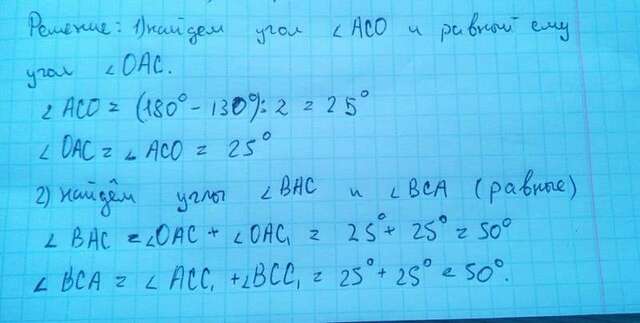 Решение: 1) найдем угол ∠ACO и равный ему
угол ∠OAC.
∠ACO = (180° - 130°): 2 = 25°
∠OAC = ∠ACO = 25°
2) Найдём углы ∠BAC и ∠BCA (равные)
∠BAC = ∠OAC + ∠OAC₁ = 25° + 25° = 50°
∠BCA = ∠ACC₁ + ∠BCC₁ = 25° + 25° = 50°.